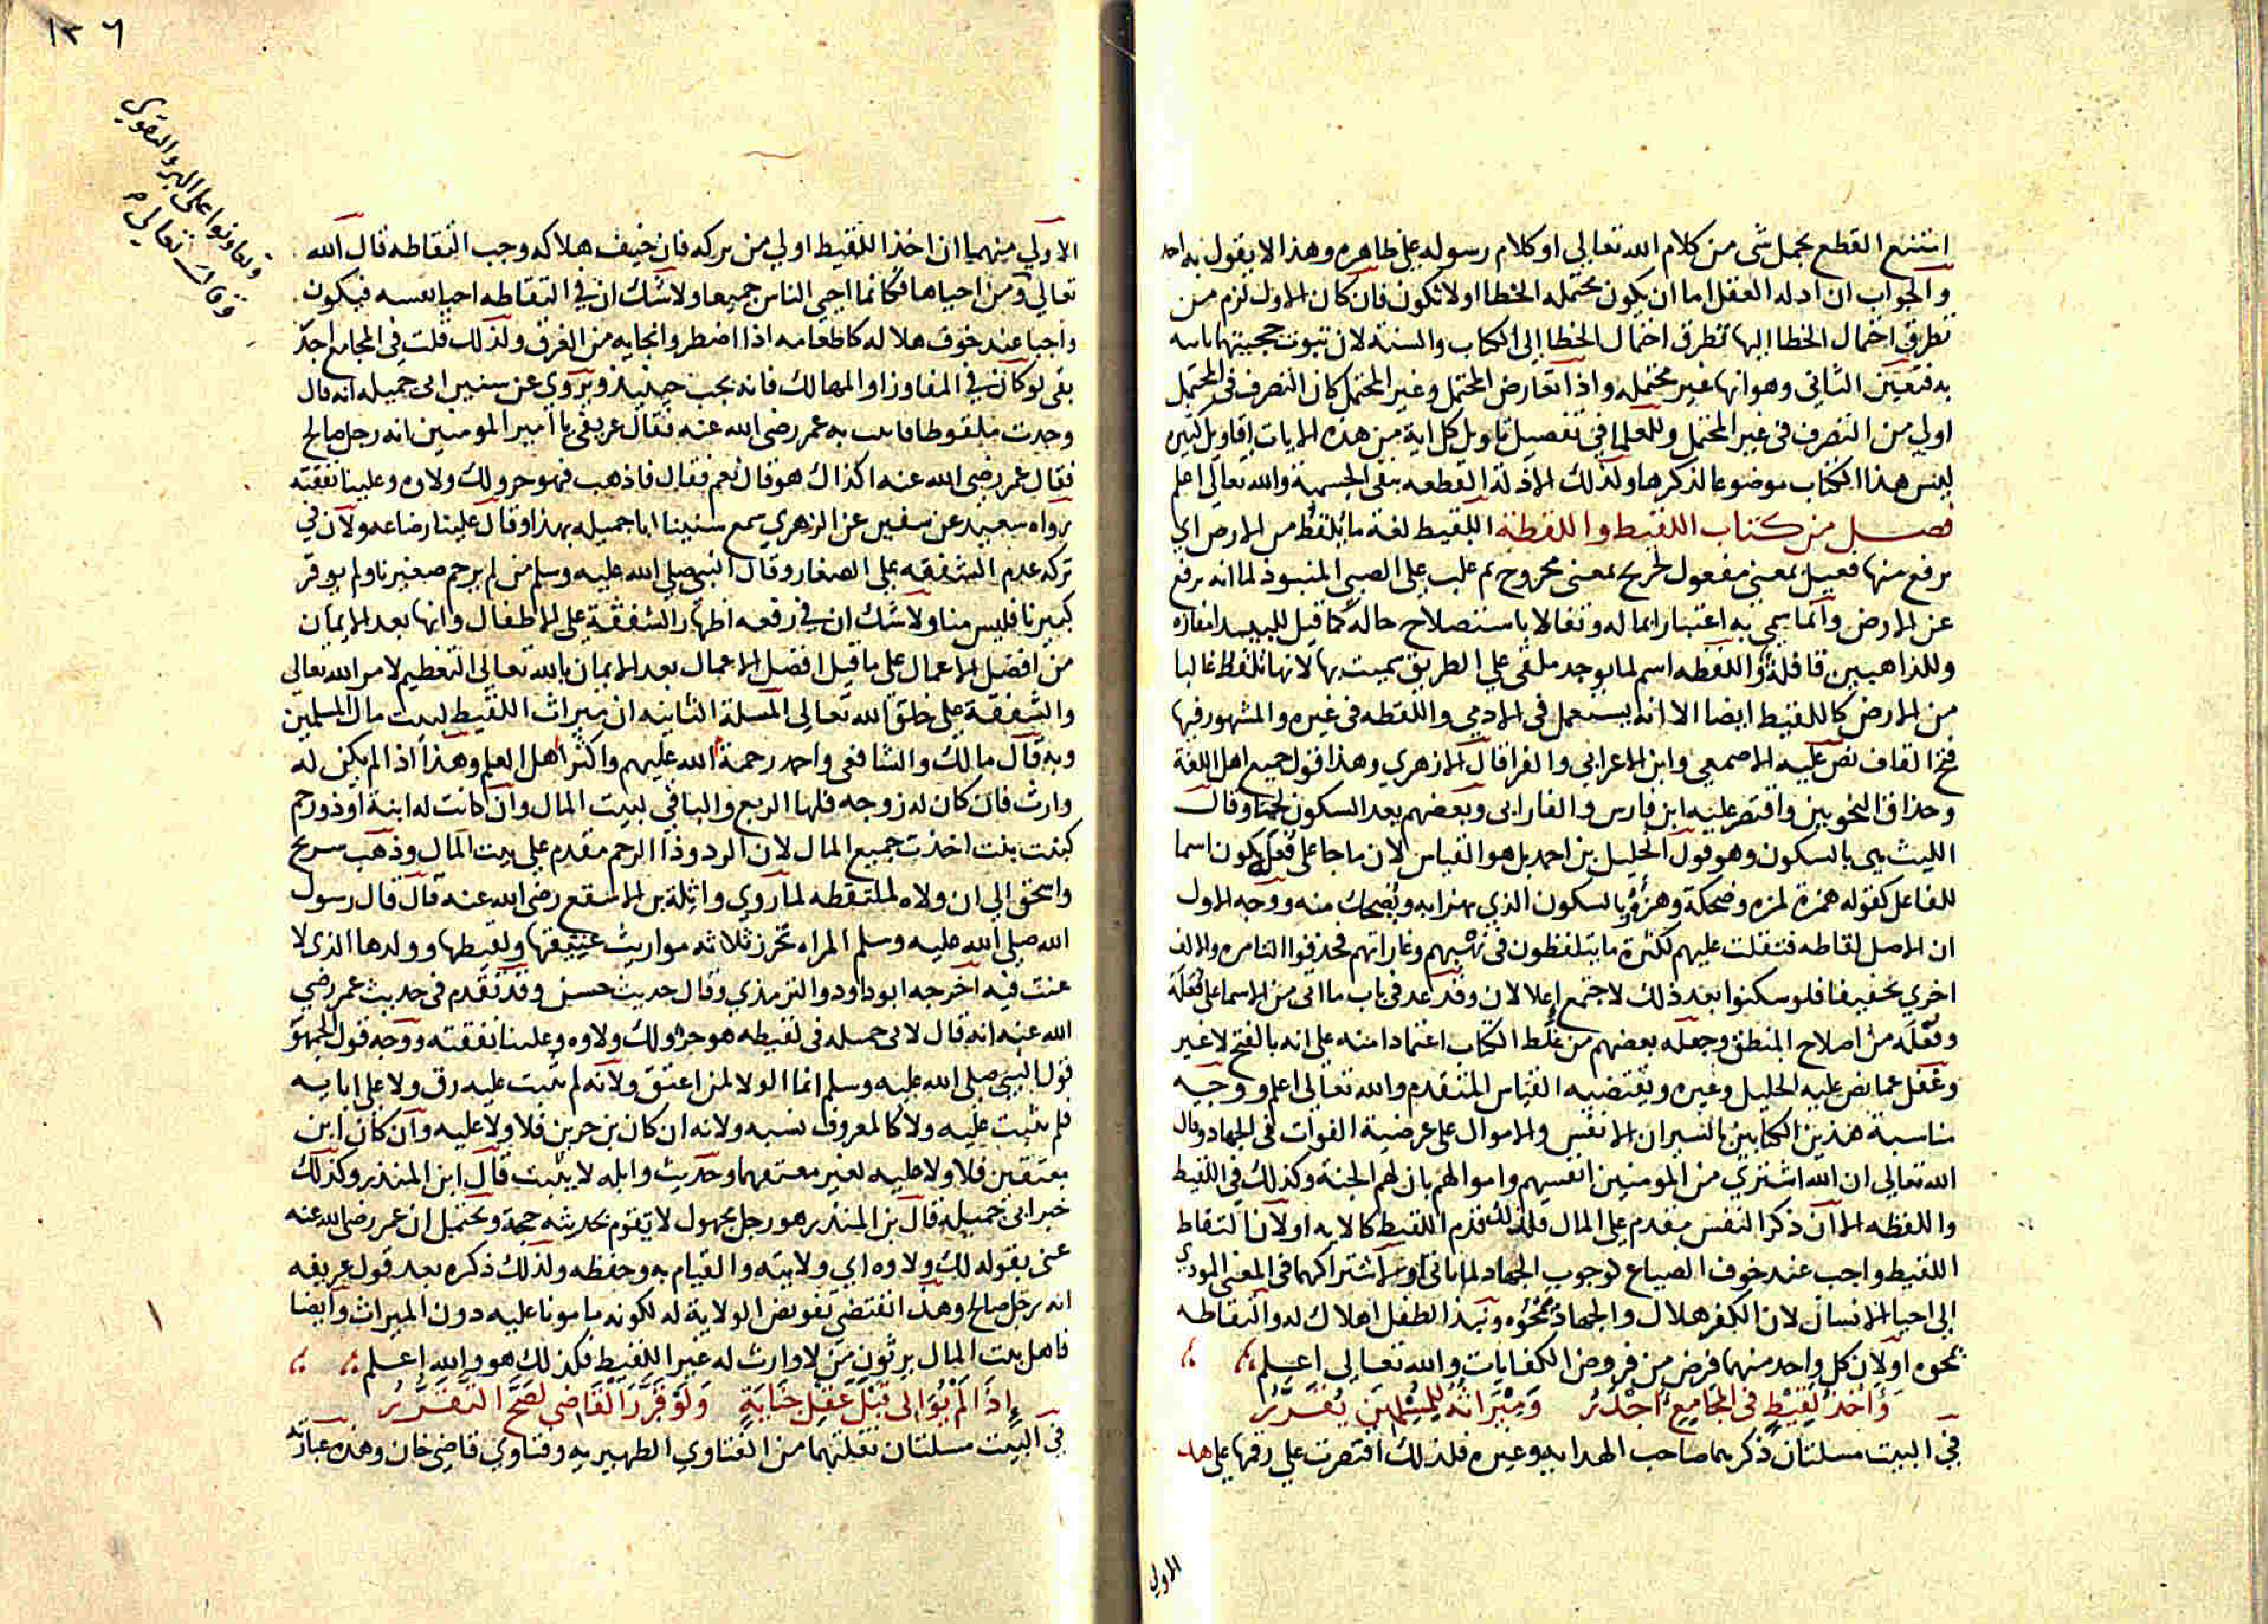 امتنع القطع بحمل شى من كلام الله تعالي او كلام رسوله على ظاهره وهذا لا يقول به احد
والجواب ان ادله العقل اما ان يكون محتمله الخطا اولا تكون فان كان الاول لزم من
تطرق احتمال الخطا اليها تطرق احتمال الخطا الى الكتاب والسنة لان ثبوت حجيتها
به فتعين الثاني وهو انها غير محتمله واذا تعارض المحتمل وغير المحتمل كان التصرف فى المحتمل
اولي من التصرف فى غير المحتمل وللعلما فى تفصيل تاويل كل اية من هذه الايات اقاويل كثيره
ليس هذا الكتاب موضوعا لذكرها ولذلك الادلة القطعه بنفى الجسمية والله تعالى اعلم
فصل من كتاب اللقيط واللقطة اللقيط لغة ما يلقط من الارض اي
يرفع منها فعيل بمعنى مفعول كجريح بمعنى مجروح ثم غلب على الصبي المنبوذ لما انه يرفع
عن الارض وانما سمي به اعتبارا لماله وتفالا باستصلاح حاله كما قيل للبيدا مفازه
وللذاهبين قافلة واللقطه اسم لما يوجد ملقى علي الطريق سميت بها لانها تلقط غالبا
من الارض كاللقيط ايضا الا انه يستعمل فى الادمي واللقطه فى غيره والمشهور فيها
فتح القاف نص عليه الاصمعي وابن الاعرابي والفرا قال الازهري وهذا قول جميع اهل اللغة
وحذاق النحويين واقتصر عليه ابن فارس والفارابى وبعضهم يعد السكون لحنا وقال
الليث هي بالسكون وهو قول الخليل بن احمد بل هو القياس لان ما جا على فعل يكون اسما
للفاعل كقوله همزة لمزه وضحكة وهزؤ بالسكون الذي يهزا به ويضحك منه ووجه الاول
ان الاصل لقاطه فثقلت عليهم لكثرة ما يتلفظون فى نهبهم وغاراتهم فحذفوا التا مره والالف
اخري تخفيفا فلو سكنوا بعد ذلك لاجتمع اعلالان وقد عد فى باب ما اتى من الاسما على فُعَلَة
وفُعْلَه من اصلاح المنطق وجعله بعضهم من غلط الكتاب اعتمادا منه على انه بالفتح لا غير
وغفل عما نص عليه الخليل وغيره ويقتضيه القياس المتقدم والله تعالى اعلم ووجه
مناسبة هذين الكتابين بالسير ان الانفس والاموال على عرضية الفوات فى الجهاد وقال
الله تعالى ان الله اشتري من المومنين انفسهم واموالهم بان لهم الجنة وكذلك فى اللقيط
واللقطه الا ان ذكر النفس مقدم على المال فلذلك قدم اللقيط كالايه اولان التقاط
اللقيط واجب عند خوف الضياع كوجوب الجهاد لما ياتى او لاشتراكهما فى المعنى المودي
الى احيا الانسان لان الكفر هلاك والجهاد محوه ونبذ الطفل اهلاك له والتقاطه
نحوه اولان كل واحد منهما فرض من فروض الكفايات والله تعالى اعلم
وَاَخْذُ لَقِيْطٍ فى الجَامِعِ اَجْدَرُ وَمِيْرَاثُهُ لِلْمُسْلِمِيْنَ يُقَرَّرُ
في البيت مسلتان ذكرهما صاحب الهدايه وغيره فلذلك اقتصرت علي رقمها على هد
الاولي
١٣٦
وتعاونوا على البر والتقوي
وقال تعالى م
الاولي منهما ان اخذ اللقيط اولي من تركه فان خيف هلاكه وجب التقاطه قال الله
تعالى ومن احياها فكانما احيى الناس جميعا ولا شك ان في التقاطه احيا نفسه فيكون
واجبا عند خوف هلاكه كاطعامه اذا اضطر وانجايه من الغرق ولذلك قلت فى المجامع اجد
بقى لو كان في المفاوز او المهالك فانه يجب حينيذ ويروي عن سنين ابى جميله انه قال
وجدت ملقوطا فاتيت به عمر رضى الله عنه فقال عريفى يا امير المومنين انه رجل صالح
فقال عمر رضى الله عنه اكذاك هو قال نعم فقال فاذهب فهو حر ولك ولاوه وعلينا نفقته
رواه سعيد عن سفين عن الزهري سمع سنينا ابا جميله بهذا وقال علينا رضاعه ولان في
تركه عدم الشفقه على الصغار وقال النبى صلى الله عليه وسلم من لم يرحم صغيرنا ولم يوقر
كبيرنا فليس منا ولا شك ان في رفعه اظهار الشفقة على الاطفال وانها بعد الايمان
من افضل الاعمال على ما قيل افضل الاعمال بعد الايمان بالله تعالى التعظيم لامر الله تعالى
والشفقة على خلق الله تعالى المسلة الثانيه ان ميراث اللقيط لبيت مال المسلمين
وبه قال مالك والشافعى واحمد رحمة الله عليهم واكثر اهل العلم وهذا اذا لم يكن له
وارث فان كان له زوجه فلها الربع والباقي لبيت المال وان كانت له ابنة او ذو رحم
كبنت بنت اخذت جميع المال لان الرد وذا الرحم مقدم على بيت المال وذهب سريح
واسحق الى ان ولاه لملتقطه لما روي واثلة بن الاسقع رضى الله عنه قال قال رسول
الله صلى الله عليه وسلم المراه تحرز ثلاثه مواريث عتيقها ولقيطها وولدها الذى لا
عنت فيه اخرجه ابو داود والترمذي وقال حديث حسن وقد تقدم فى حديث عمر رضي
الله عنه انه قال لابى جميله فى لقيطه هو حر ولك ولاوه وعلينا نفقته ووجه قول الجمهو
قول النبى صلى الله عليه وسلم انما الولا لمن اعتق ولانه لم يثبت عليه رق ولا على ابايه
فلم يثبت عليه ولا كالمعروف نسبه ولانه ان كان بن حرين فلا ولا عليه وان كان ابن
معتقين فلا ولا عليه لغير معتقهما وحديث واثله لا يثبت قال ابن المنذر وكذلك
خبر ابى جميله قال بن المنذر هو رجل مجهول لا تقوم بحديثه حجة ويحتمل ان عمر رضى الله عنه
عنى بقوله لك ولاوه اي ولايته والقيام به وحفظه ولذلك ذكره بعد قول عريفه
انه رجل صالح وهذا يقتضي تفويض الولاية له لكونه مامونا عليه دون الميراث وايضا
فاهل بيت المال يرثون من لا وارث له غير اللقيط فكذلك هو والله اعلم
اِذَا لَمْ يُوَالى قَبْلَ عَقْلِ جِنَايَةٍ وَلَوْ قَرَّرَ القَاضِى لَصَحَّ التَقَرُّرُ
في البيت مسلتان نقلتهما من الفتاوي الظهيريه وفتاوي قاضي خان وهذه عبارته